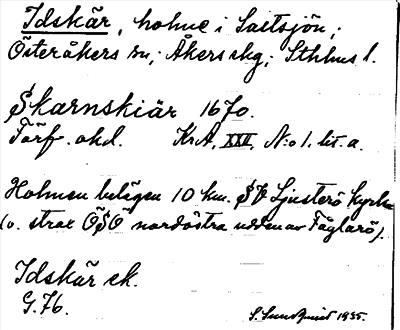 Idskär, holme i Saltsjön;
Österåkers sn; Åkers skg; Sthlms l.
Skarnskiär 1670.
Förf. okd. KrA, XXII, N:o 1. lit. a.
Holmen belägen 10 km. SV Ljusterö kyrka
(o. strax ÖSÖ nordöstra udden av Fåglarö).
Idskär ek.
G. 76.
S. Sundquist 1935.